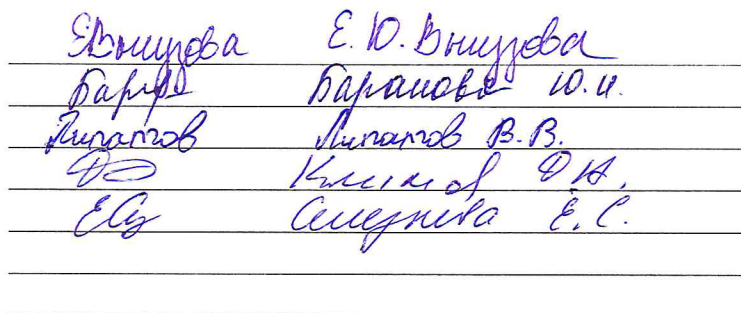 ЕВышузова Е.Ю. Вышузова
Баранова Ю.И.
Липатов Липатов В.В.
Климов Д.Н.
Селезнева Е.С.